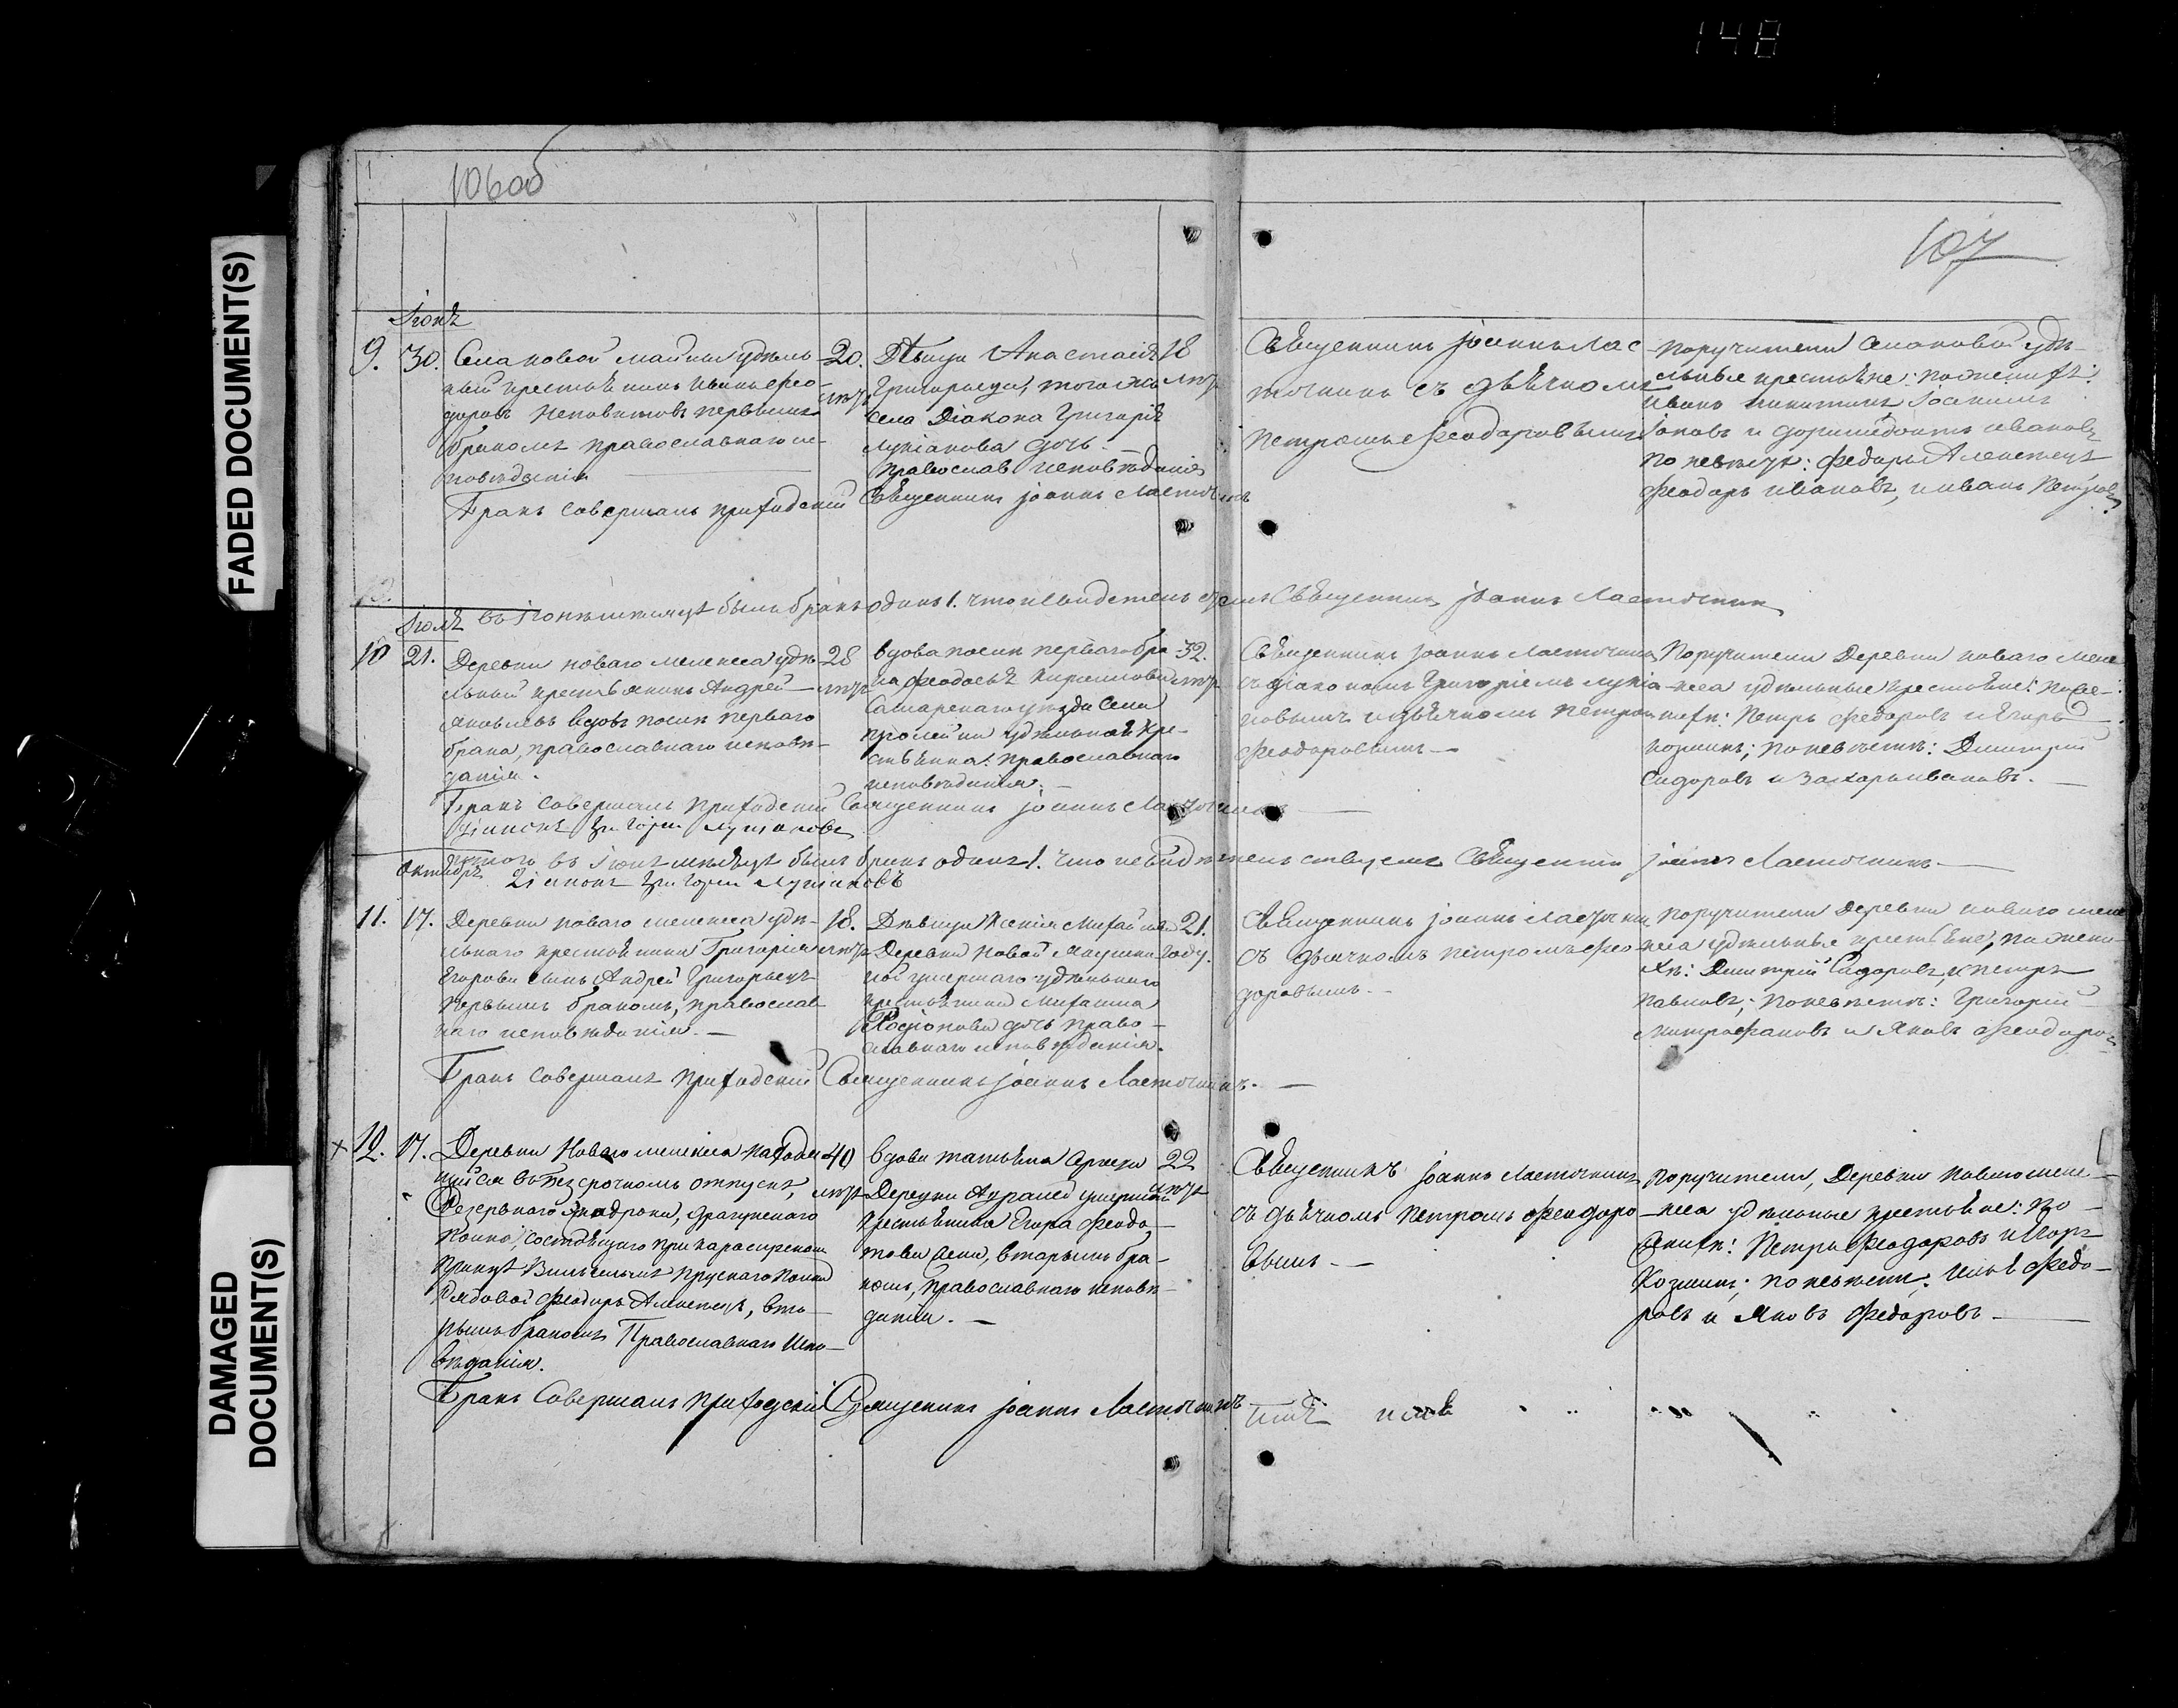 148
FADED DOCUMENT(S)
DAMAGED
DOCUMENT(S)
106об
107
Іюнь
9. 30. Села новой майны удѣль
ный крестьянинъ Иванъ Фео-
доровъ первымъ
бракомъ православнаго ис-
повѣданія
20.
лѣтъ
Дѣвица Анастасія
Григорьева, того же
села Діакона Григорія
Лукіанова дочь
православ исповѣданія
18
лѣтъ
Священникъ Іоаннъ Лас-
точкинъ съ дьячкомъ
Петромъ Феодоровымъ
Поручители села новой удѣ-
льные крестьяне: по женихѣ:
Иванъ Никитинъ
и Доримедонтъ Ивановъ
по невѣстѣ: Федоръ
Феодоръ Ивановъ, и Иванъ Петровъ
Бракъ совершалъ приходскій Священникъ Іоаннъ Ласточкинъ
въ Іюнѣ мѣсяцѣ былъ бракъ одинъ 1. что и свидѣтельствуемъ Священникъ Іоаннъ Ласточкинъ
Іюль
10 21. Деревни новаго мелекеса удѣ-
льный крестьянинъ Андрей
Яковлевъ вдовъ послѣ перваго
брака, православнаго исповѣ-
данія.
28
лѣтъ
вдова послѣ перваго бра-
ка Феодосья Кириллова
Самарскаго уѣзда села
удѣльная кре-
стьянка: православнаго
исповѣданія.
32.
лѣтъ
Священникъ Іоаннъ Ласточкинъ
съ діакономъ Григоріемъ Лукіа-
новымъ и дьячкомъ Петромъ
Феодоровымъ
Поручители Деревни новаго меле
кеса удѣльные крестьяне: по же-
нихѣ: Петръ Федоровъ и Егоръ
Козминъ; по невѣстѣ: Дмитрій
Сидоровъ и Захаръ Ивановъ.
Бракъ совершалъ приходскій Священникъ Іоаннъ Ласточкинъ
Діаконъ Григорій Лукіановъ
въ мѣсяцѣ былъ бракъ одинъ 1. что и свидѣтельствуемъ Священникъ Іоаннъ Ласточкинъ.
Октябрь Діаконъ Григорій Лукіановъ
11. 17. Деревни новаго мелекеса удѣ-
льнаго крестьянина Григорія
Егорова сынъ Андрей Григорьевъ
первымъ бракомъ, православ
наго исповѣданія.
18.
лѣтъ
Дѣвица Ксенія Михайлова
Деревни новой
умершаго удѣльнаго
крестьянина Михаила
Родіонова дочь право-
славнаго исповѣданія.
21.
году.
Священникъ Іоаннъ Ласточкинъ
съ дьячкомъ Петромъ Фео-
доровымъ.
Поручители Деревни новаго меле
кеса удѣльные крестьяне, по жени-
хѣ: Дмитрій Сидоровъ, и Петръ
Павловъ; по невѣстѣ: Григорій
Митрофановъ и Яковъ Феодоровъ
Бракъ совершалъ приходскій Священникъ Іоаннъ Ласточкинъ.
+ 12. 17. Деревни Новаго мелекеса находя
щійся въ безсрочномъ отпускѣ,
Резервнаго эскадрона, драгунскаго
полка, состоящаго при кирасирскомъ
принца Вильгельма Прускаго полка
Рядовой Федоръ, вто-
рымъ бракомъ Православнаго Испо-
вѣданія.
40
лѣтъ
вдова Татьяна Сергеева
Деревни умершаго
крестьянина Егора Феодо-
това жена, вторымъ бра-
комъ, православнаго исповѣ-
данія.
22
лѣтъ
Священникъ Іоаннъ Ласточкинъ
съ дьячкомъ Петромъ Феодоро-
вымъ.
Поручители, Деревни новаго меле-
кеса удѣльные крестьяне: по
женихѣ: Петръ Феодоровъ и Егоръ
Козминъ; по невѣстѣ: Федо-
ровъ и Яковъ Федоровъ.
Бракъ совершалъ приходскій Священникъ Іоаннъ Ласточкинъ